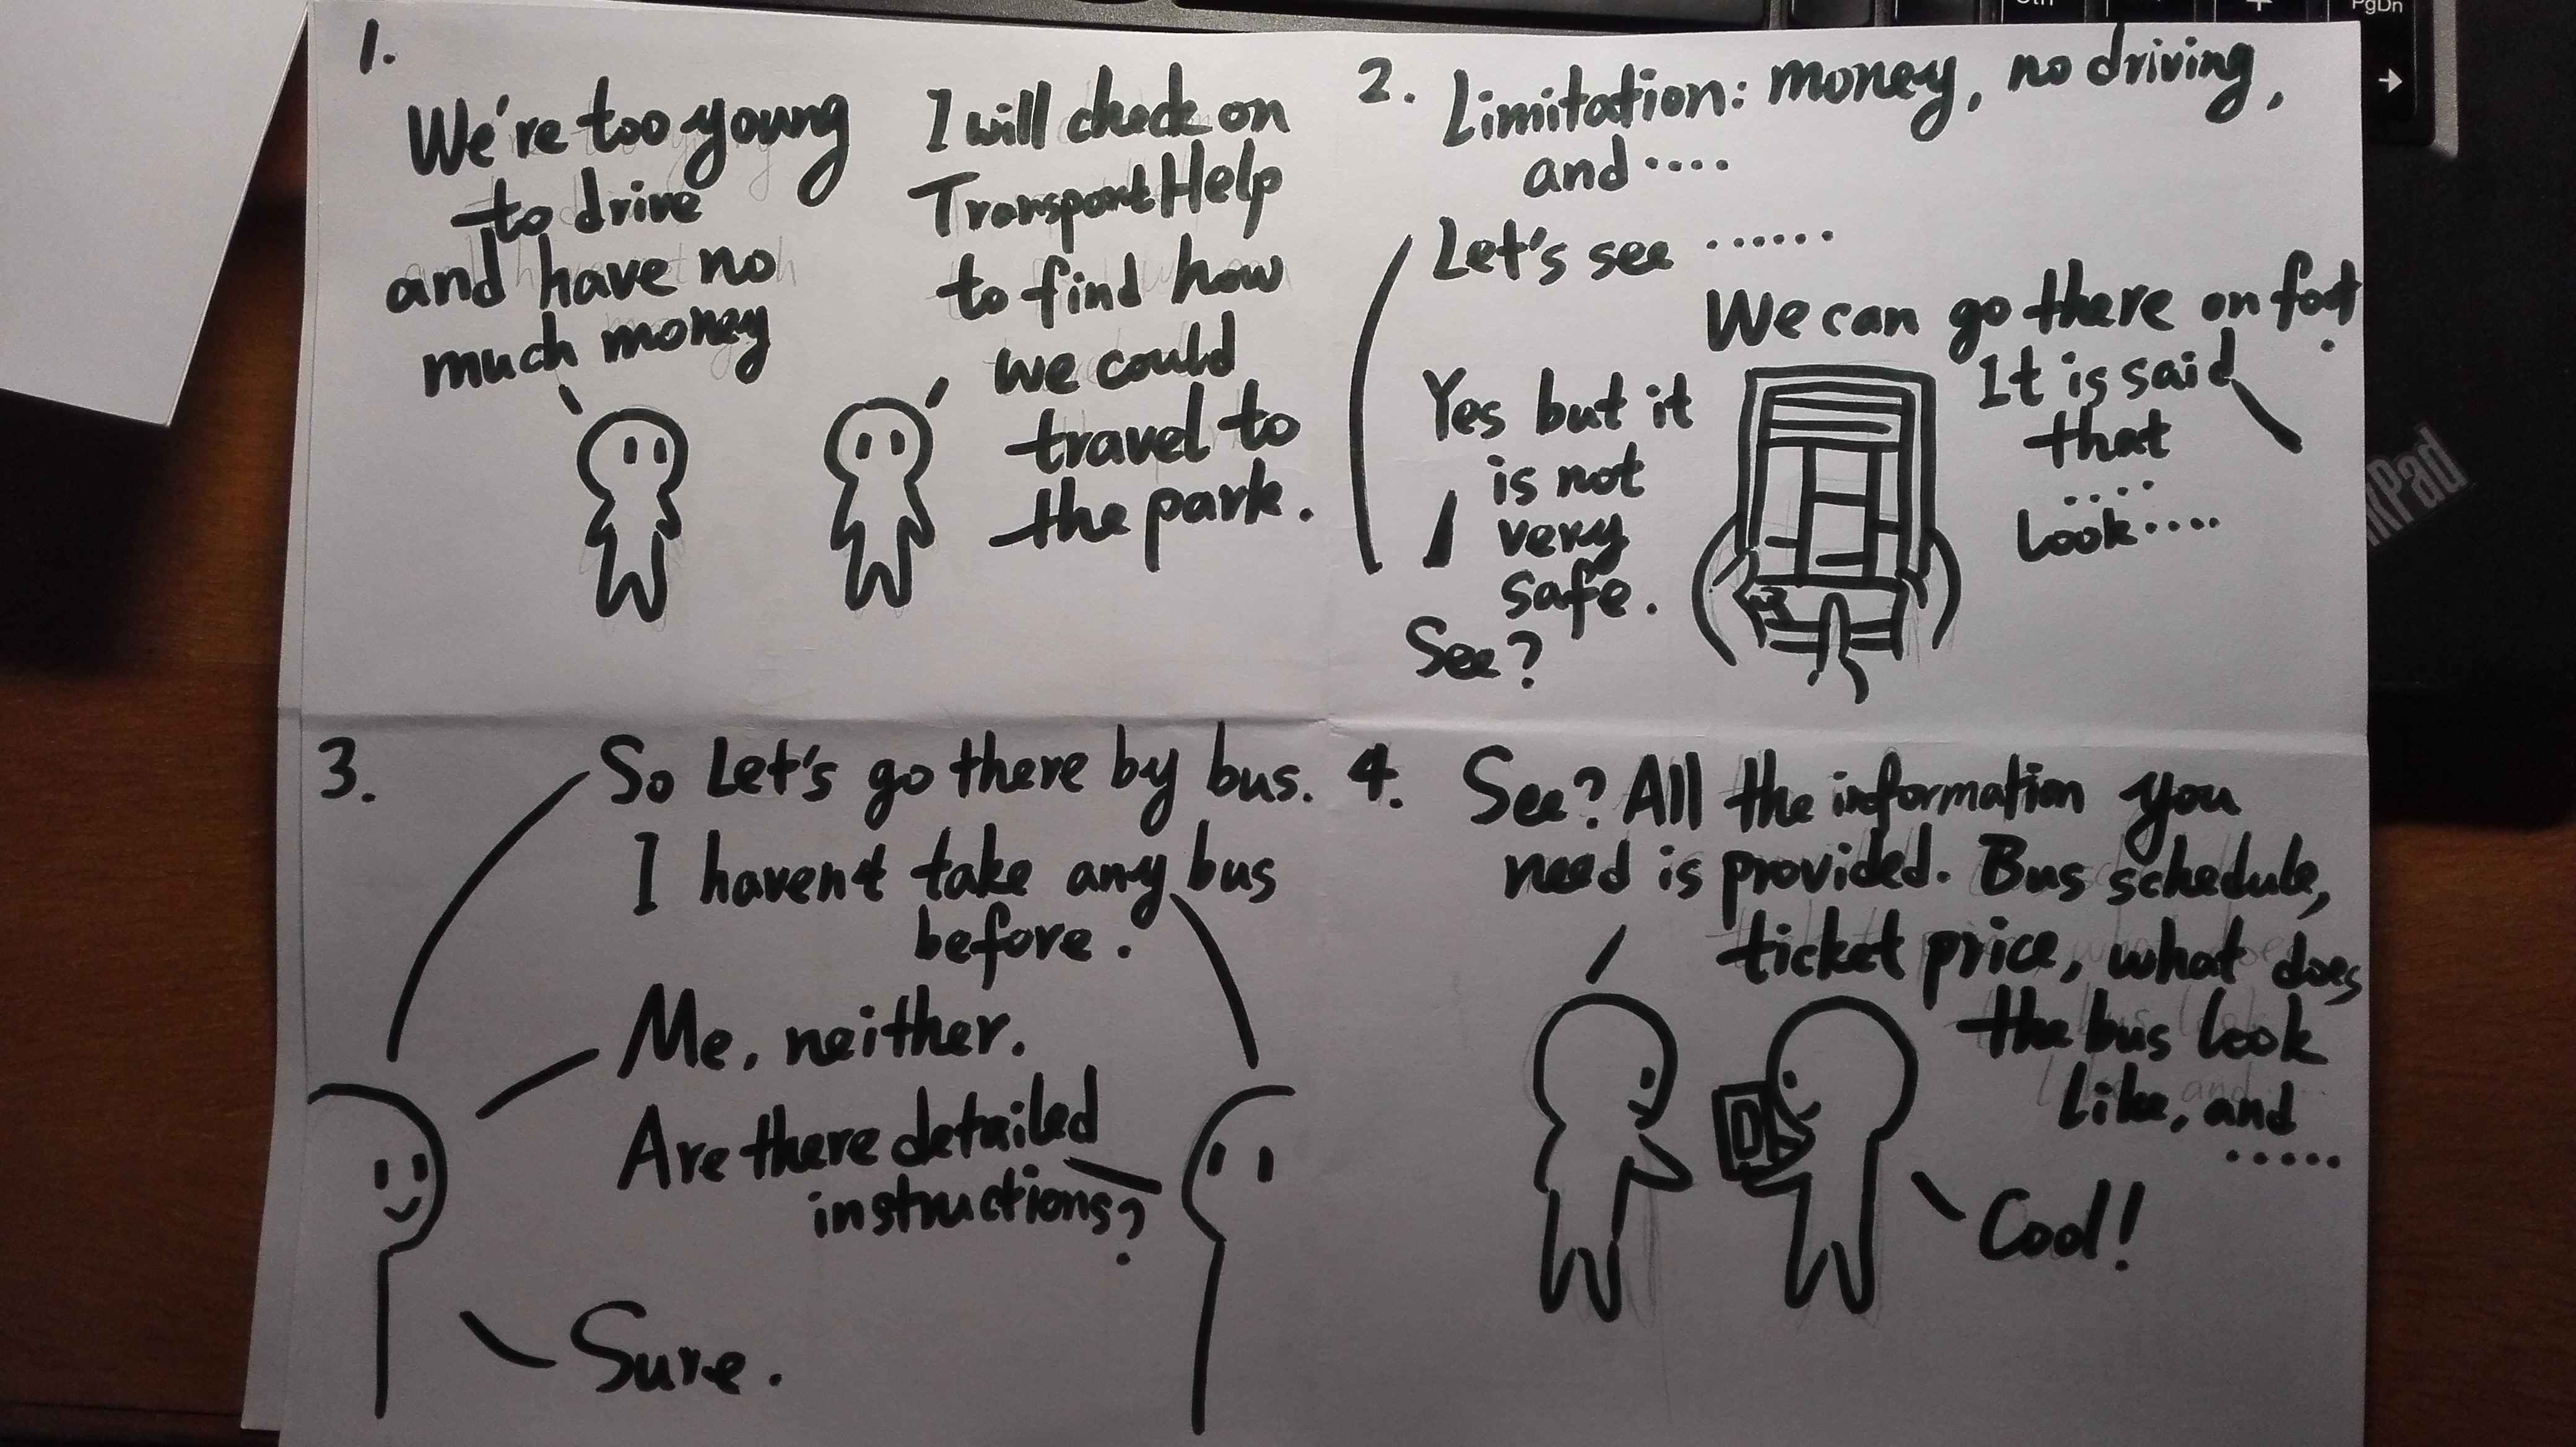 1.
We're too young
to drive
and have no
much money
I will check on
TransportHelp
to find how
we could
travel to
the park.
2. Limitation: money, no driving,
and ....
Let's see ......
We can go there on foot.
It is said
that
....
look....
Yes but it
is not
very
safe.
See?
3.
So Let's go there by bus.
I haven't take any bus
before.
Me, neither.
Are there detailed
instructions?
Sure.
4. See? All the information you
need is provided. Bus schedule,
ticket price, what does
the bus look
like, and
.....
Cool!
PgDn
kPad